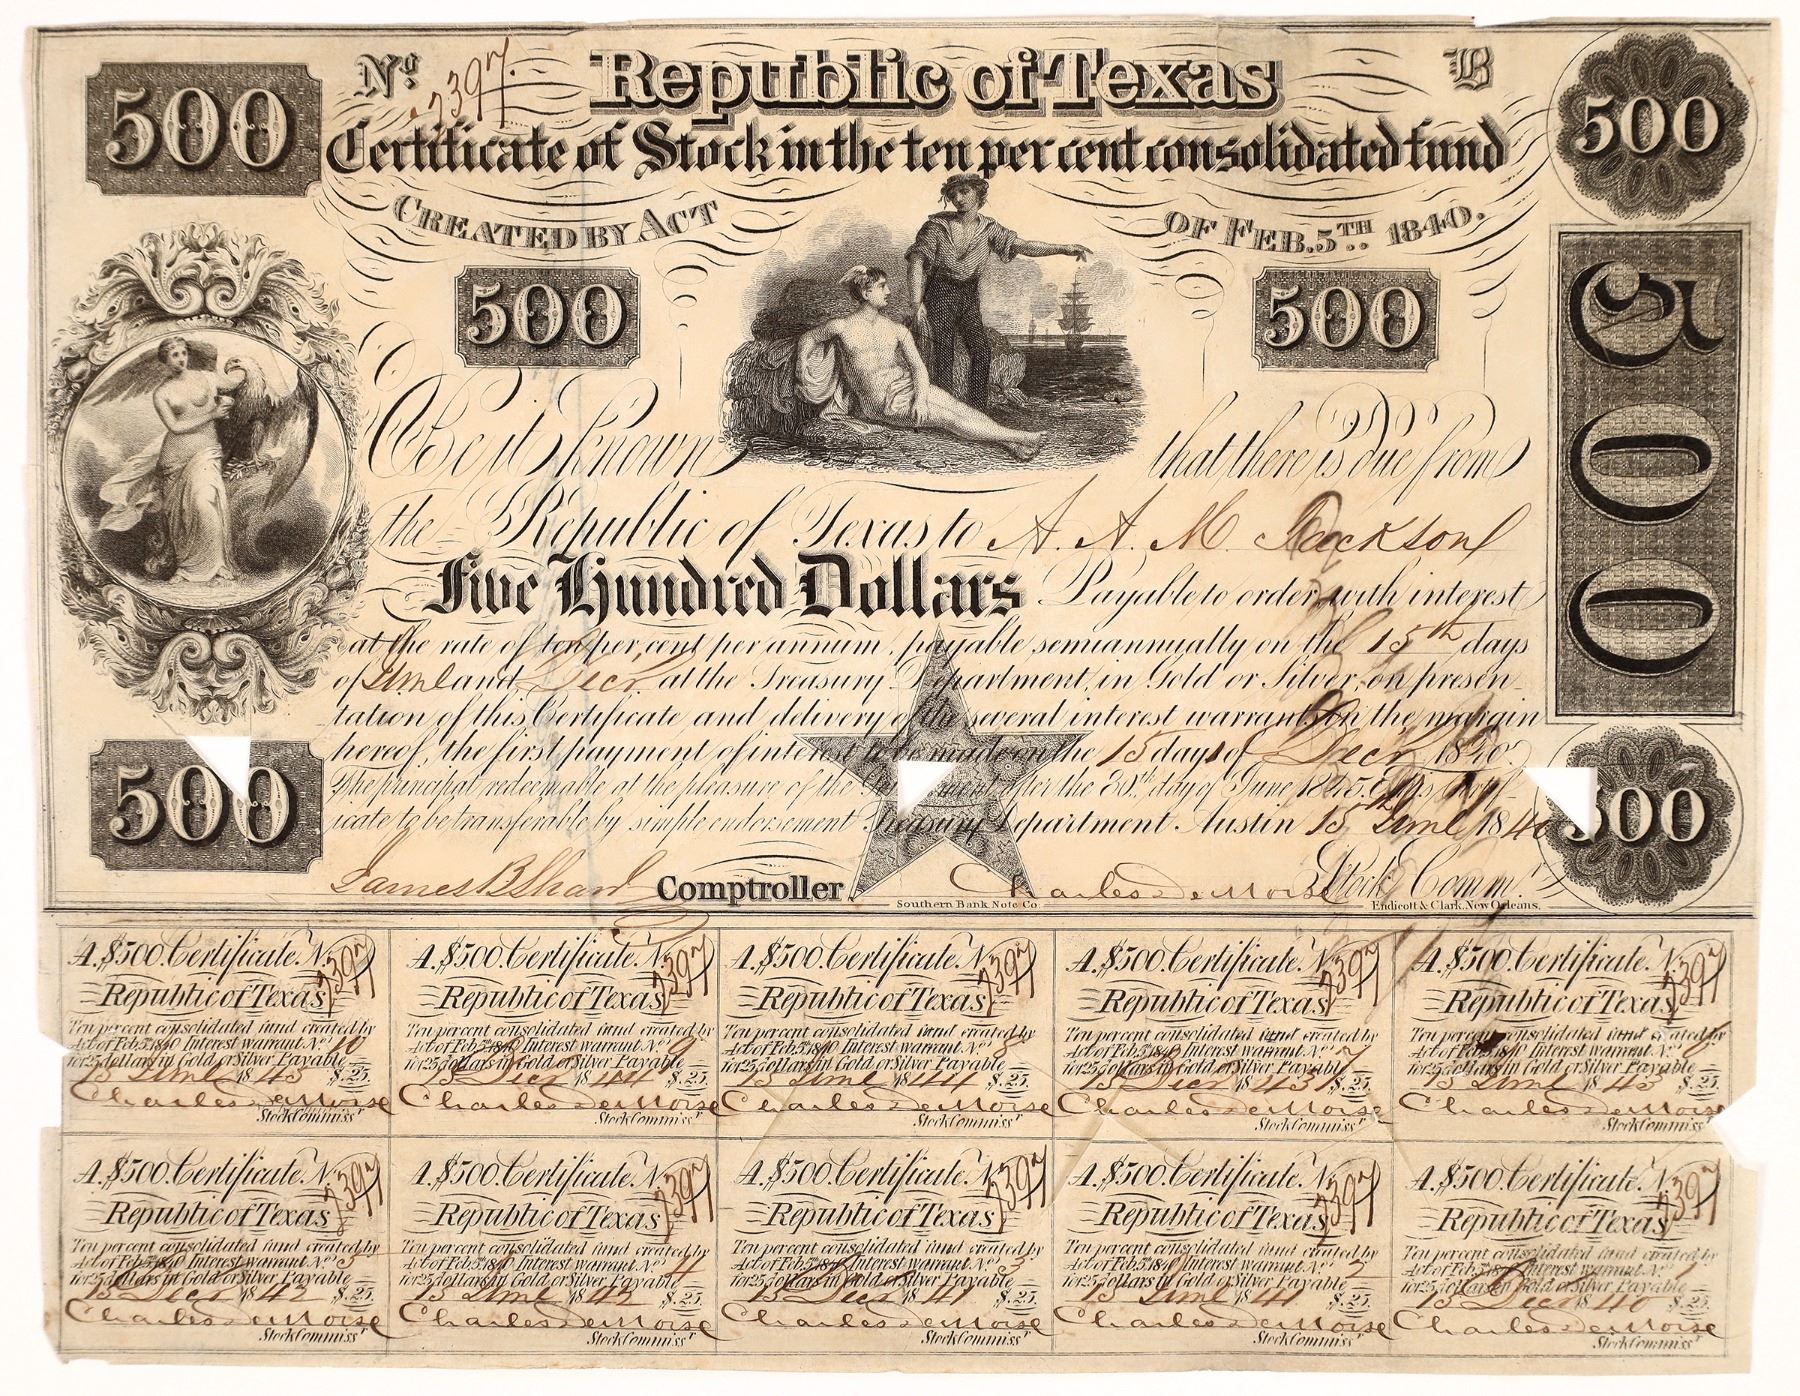 500
No. 7397.
Republic of Texas
B
500
Certificate of Stock in the ten per cent consolidated fund
Created by Act of Feb. 5th 1840.
500
500
500
Be it known that there is due from
the Republic of Texas to A. A. M. Jackson
Five Hundred Dollars Payable to order, with interest
at the rate of ten per cent per annum, payable semiannually on the 15th days
of June and Decr. at the Treasury Department, in Gold or Silver, on presen-
tation of this Certificate and delivery of the several interest warrants on the margin
hereof, the first payment of interest to be made on the 15 days of Decr. 1840.
The principal redeemable at the pleasure of the after the 30th day of June 1845.
icate to be transferable by simple endorsement Treasury Department Austin 15 June 1840
500
500
James B Shaw Comptroller Charles DeMorse Stock Commr.
Southern Bank Note Co. Endicott & Clark, New Orleans.
A. $500. Certificate N. 7397
Republic of Texas
Ten percent consolidated fund created by
Act of Feb. 5th 1840 Interest warrant No. 10
for 25 dollars in Gold or Silver Payable
15 June 1845 $.25.
Charles DeMorse
Stock Commissr
A. $500. Certificate N. 7397
Republic of Texas
Ten percent consolidated fund created by
Act of Feb. 5th 1840 Interest warrant No. 9
for 25 dollars in Gold or Silver Payable
15 Decr 1844 $.25.
Charles DeMorse
Stock Commissr
A. $500. Certificate N. 7397
Republic of Texas
Ten percent consolidated fund created by
Act of Feb. 5th 1840 Interest warrant No. 8
for 25 dollars in Gold or Silver Payable
15 June 1844 $.25.
Charles DeMorse
Stock Commissr
A. $500. Certificate N. 7397
Republic of Texas
Ten percent consolidated fund created by
Act of Feb. 5th 1840 Interest warrant No. 7
for 25 dollars in Gold or Silver Payable
15 Decr 1843 $.25.
Charles DeMorse
Stock Commissr
A. $500. Certificate N. 7397
Republic of Texas
Ten percent consolidated fund created by
Act of Feb. 5th 1840 Interest warrant No. 6
for 25 dollars in Gold or Silver Payable
15 June 1843 $.25.
Charles DeMorse
Stock Commissr
A. $500. Certificate N. 7397
Republic of Texas
Ten percent consolidated fund created by
Act of Feb. 5th 1840 Interest warrant No. 5
for 25 dollars in Gold or Silver Payable
15 Decr 1842 $.25.
Charles DeMorse
Stock Commissr
A. $500. Certificate N. 7397
Republic of Texas
Ten percent consolidated fund created by
Act of Feb. 5th 1840 Interest warrant No. 4
for 25 dollars in Gold or Silver Payable
15 June 1842 $.25.
Charles DeMorse
Stock Commissr
A. $500. Certificate N. 7397
Republic of Texas
Ten percent consolidated fund created by
Act of Feb. 5th 1840 Interest warrant No. 3
for 25 dollars in Gold or Silver Payable
15 Decr 1841 $.25.
Charles DeMorse
Stock Commissr
A. $500. Certificate N. 7397
Republic of Texas
Ten percent consolidated fund created by
Act of Feb. 5th 1840 Interest warrant No. 2
for 25 dollars in Gold or Silver Payable
15 June 1841 $.25.
Charles DeMorse
Stock Commissr
A. $500. Certificate N. 7397
Republic of Texas
Ten percent consolidated fund created by
Act of Feb. 5th 1840 Interest warrant No. 1
for 25 dollars in Gold or Silver Payable
15 Decr 1840 $.25.
Charles DeMorse
Stock Commissr